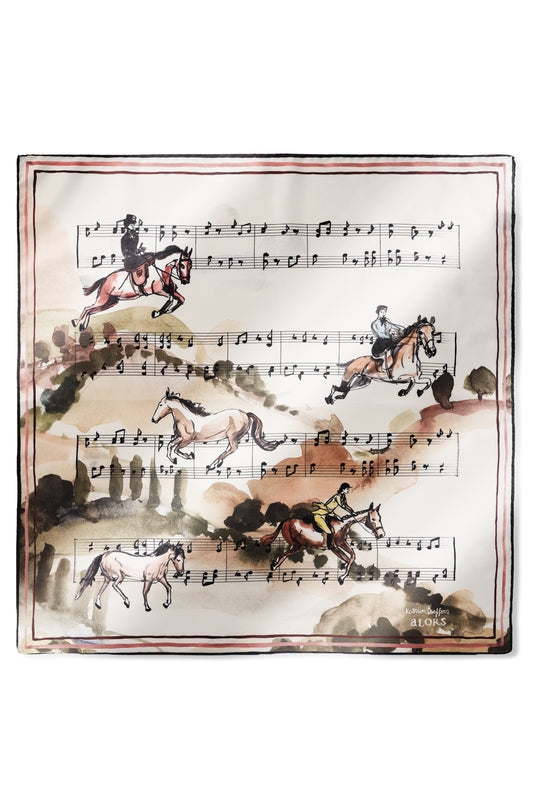 Katrin Steffens
aLORS